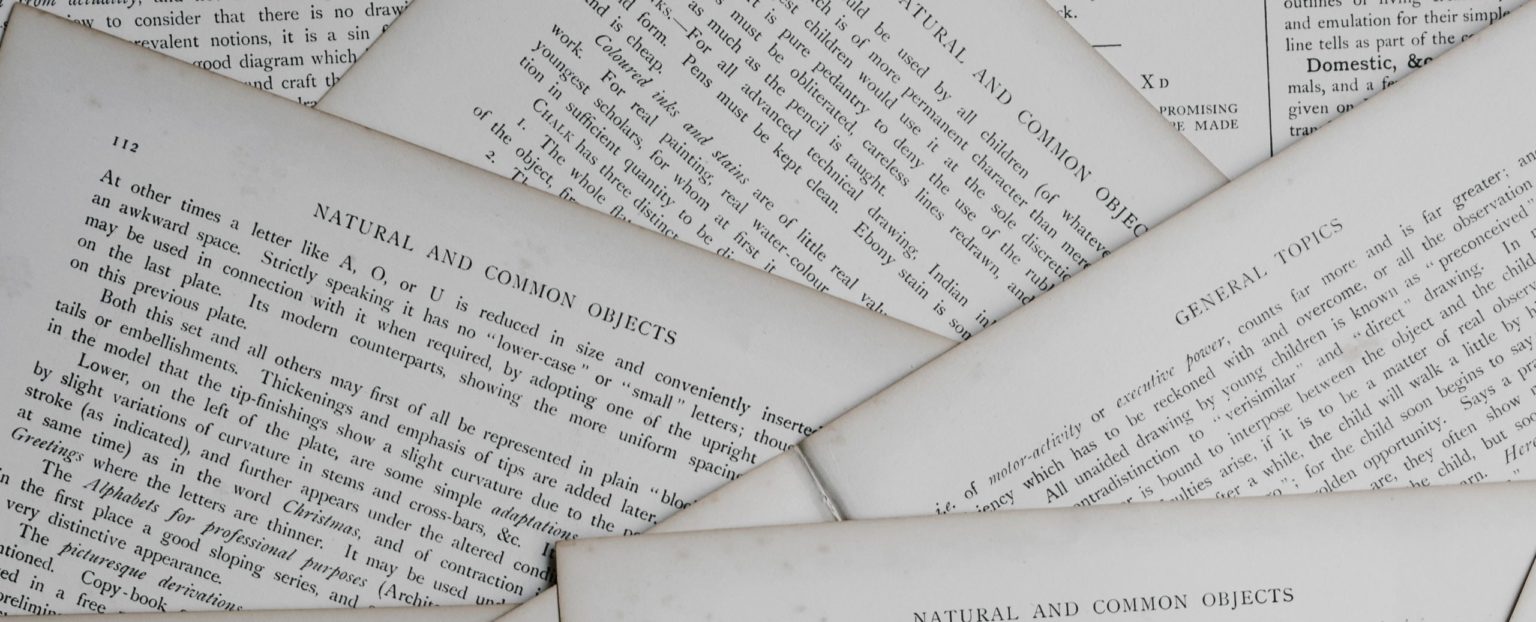 to consider that there is no
prevalent notions, it is a sin
good diagram which
and craft
112
NATURAL AND COMMON OBJECTS
At other times a letter like A, O, or U is reduced in size and conveniently inserted
an awkward space. Strictly speaking it has no "lower-case" or "small" letters; though
may be used in connection with it when required, by adopting one of the upright
on the last plate. Its modern counterparts, showing the more uniform spacing
on this previous plate.
Both this set and all others may first of all be represented in plain "block
tails or embellishments. Thickenings and emphasis of tips are added later.
in the model that the tip-finishings show a slight curvature due to the
Lower, on the left of the plate, are some simple adaptations
by slight variations of curvature in stems and cross-bars, &c.
stroke (as indicated), and further appears under the altered
at same time) as in the word Christmas, and of contraction
Greetings where the letters are thinner. It may be used
The Alphabets for professional purposes
in the first place a good sloping series, and
very distinctive appearance.
The picturesque derivations
Copy-book
in a free
NATURAL AND COMMON OBJEC
ould be used by all children (of whatever
is of more permanent character than mere
est children would use it at the sole discretion
is pure pedantry to deny the use of the
must be obliterated, careless lines redrawn, and
as much as the pencil is taught.
For all advanced technical drawing, Indian
and form. Pens must be kept clean. Ebony stain is
and is cheap.
Coloured inks and stains are of little real
work. For real painting, real water-colour
youngest scholars, for whom at first it
tion in sufficient quantity to be
CHALK has three distinct
1. The whole
of the object,
2.
X D
PROMISING
MADE
and emulation for their simple
line tells as part of the
Domestic, &c
mals, and a
given on
GENERAL TOPICS
i.e. of motor-activity or executive power, counts far more and is far greater;
which has to be reckoned with and overcome, or all the observation
All unaided drawing by young children is known as "preconceived"
contradistinction to "verisimilar" and "direct" drawing. In
is bound to interpose between the object and the child
arise, if it is to be a matter of real
a while, the child will walk a little by
for the child soon begins to say
golden opportunity. Says a
are, they often show
child, but
Here
NATURAL AND COMMON OBJECTS